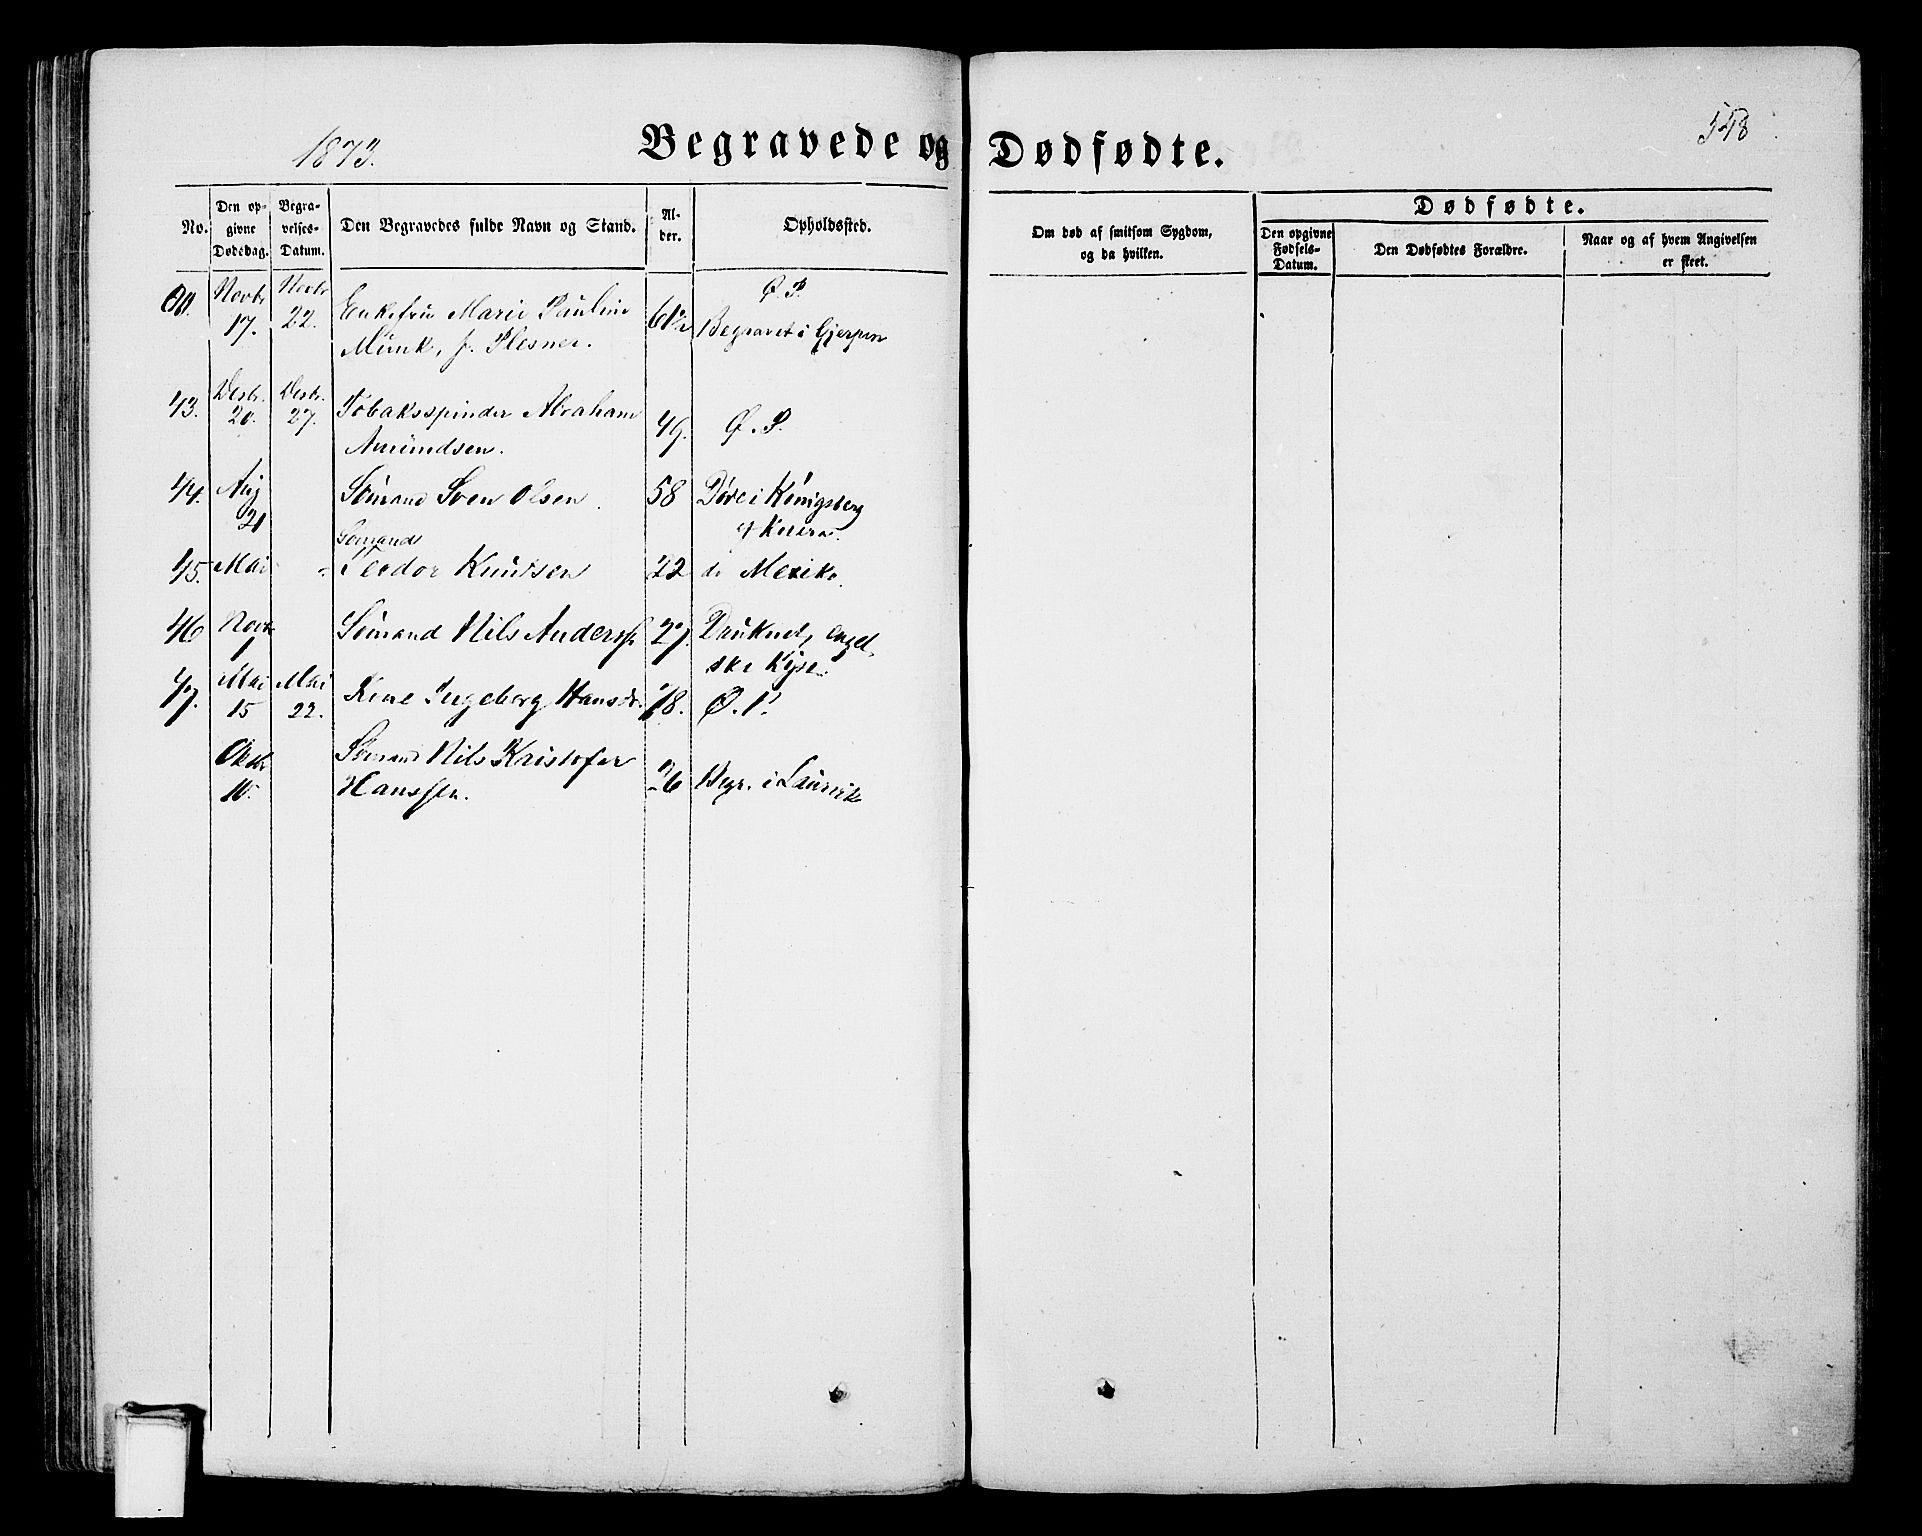 1873.
Begravede og Dødfødte.
558
No.
Den opgivne Dødsdag.
Begravelses-Datum.
Den Begravedes fulde Navn og Stand.
Alder.
Opholdssted.
Om død af smitsom Sygdom, og da hvilken.
Dødfødte.
Den opgivne Fødsels-Datum.
Den Dødfødtes Forældre.
Naar og af hvem Angivelsen er skeet.
Novbr Novbr Ø. P.
17. 22. Enkefru Marie Pauline 61½ Begravet i Gjerpen
Munk, f. Plesner.
43. Desbr. Desbr. Tobaksspinder Abraham
20. 27. 49. Ø. P.
Amundsen.
44. Aug Sømand Sven Olsen. 58 Døde i Königsberg
21
Sømand
45. Mai Teodor Knudsen 22 di Mexiko.
46 Novbr Sømand Nils Anders 27. Druknet, engel
7 ske Kyst.
47. Mai Mai Kone Ingeborg Hansdr. 78. Ø. P.
15 22.
Oktbr Sømand Nils Kristofer
10. Hanssen. 26 Begr. i Laurvik